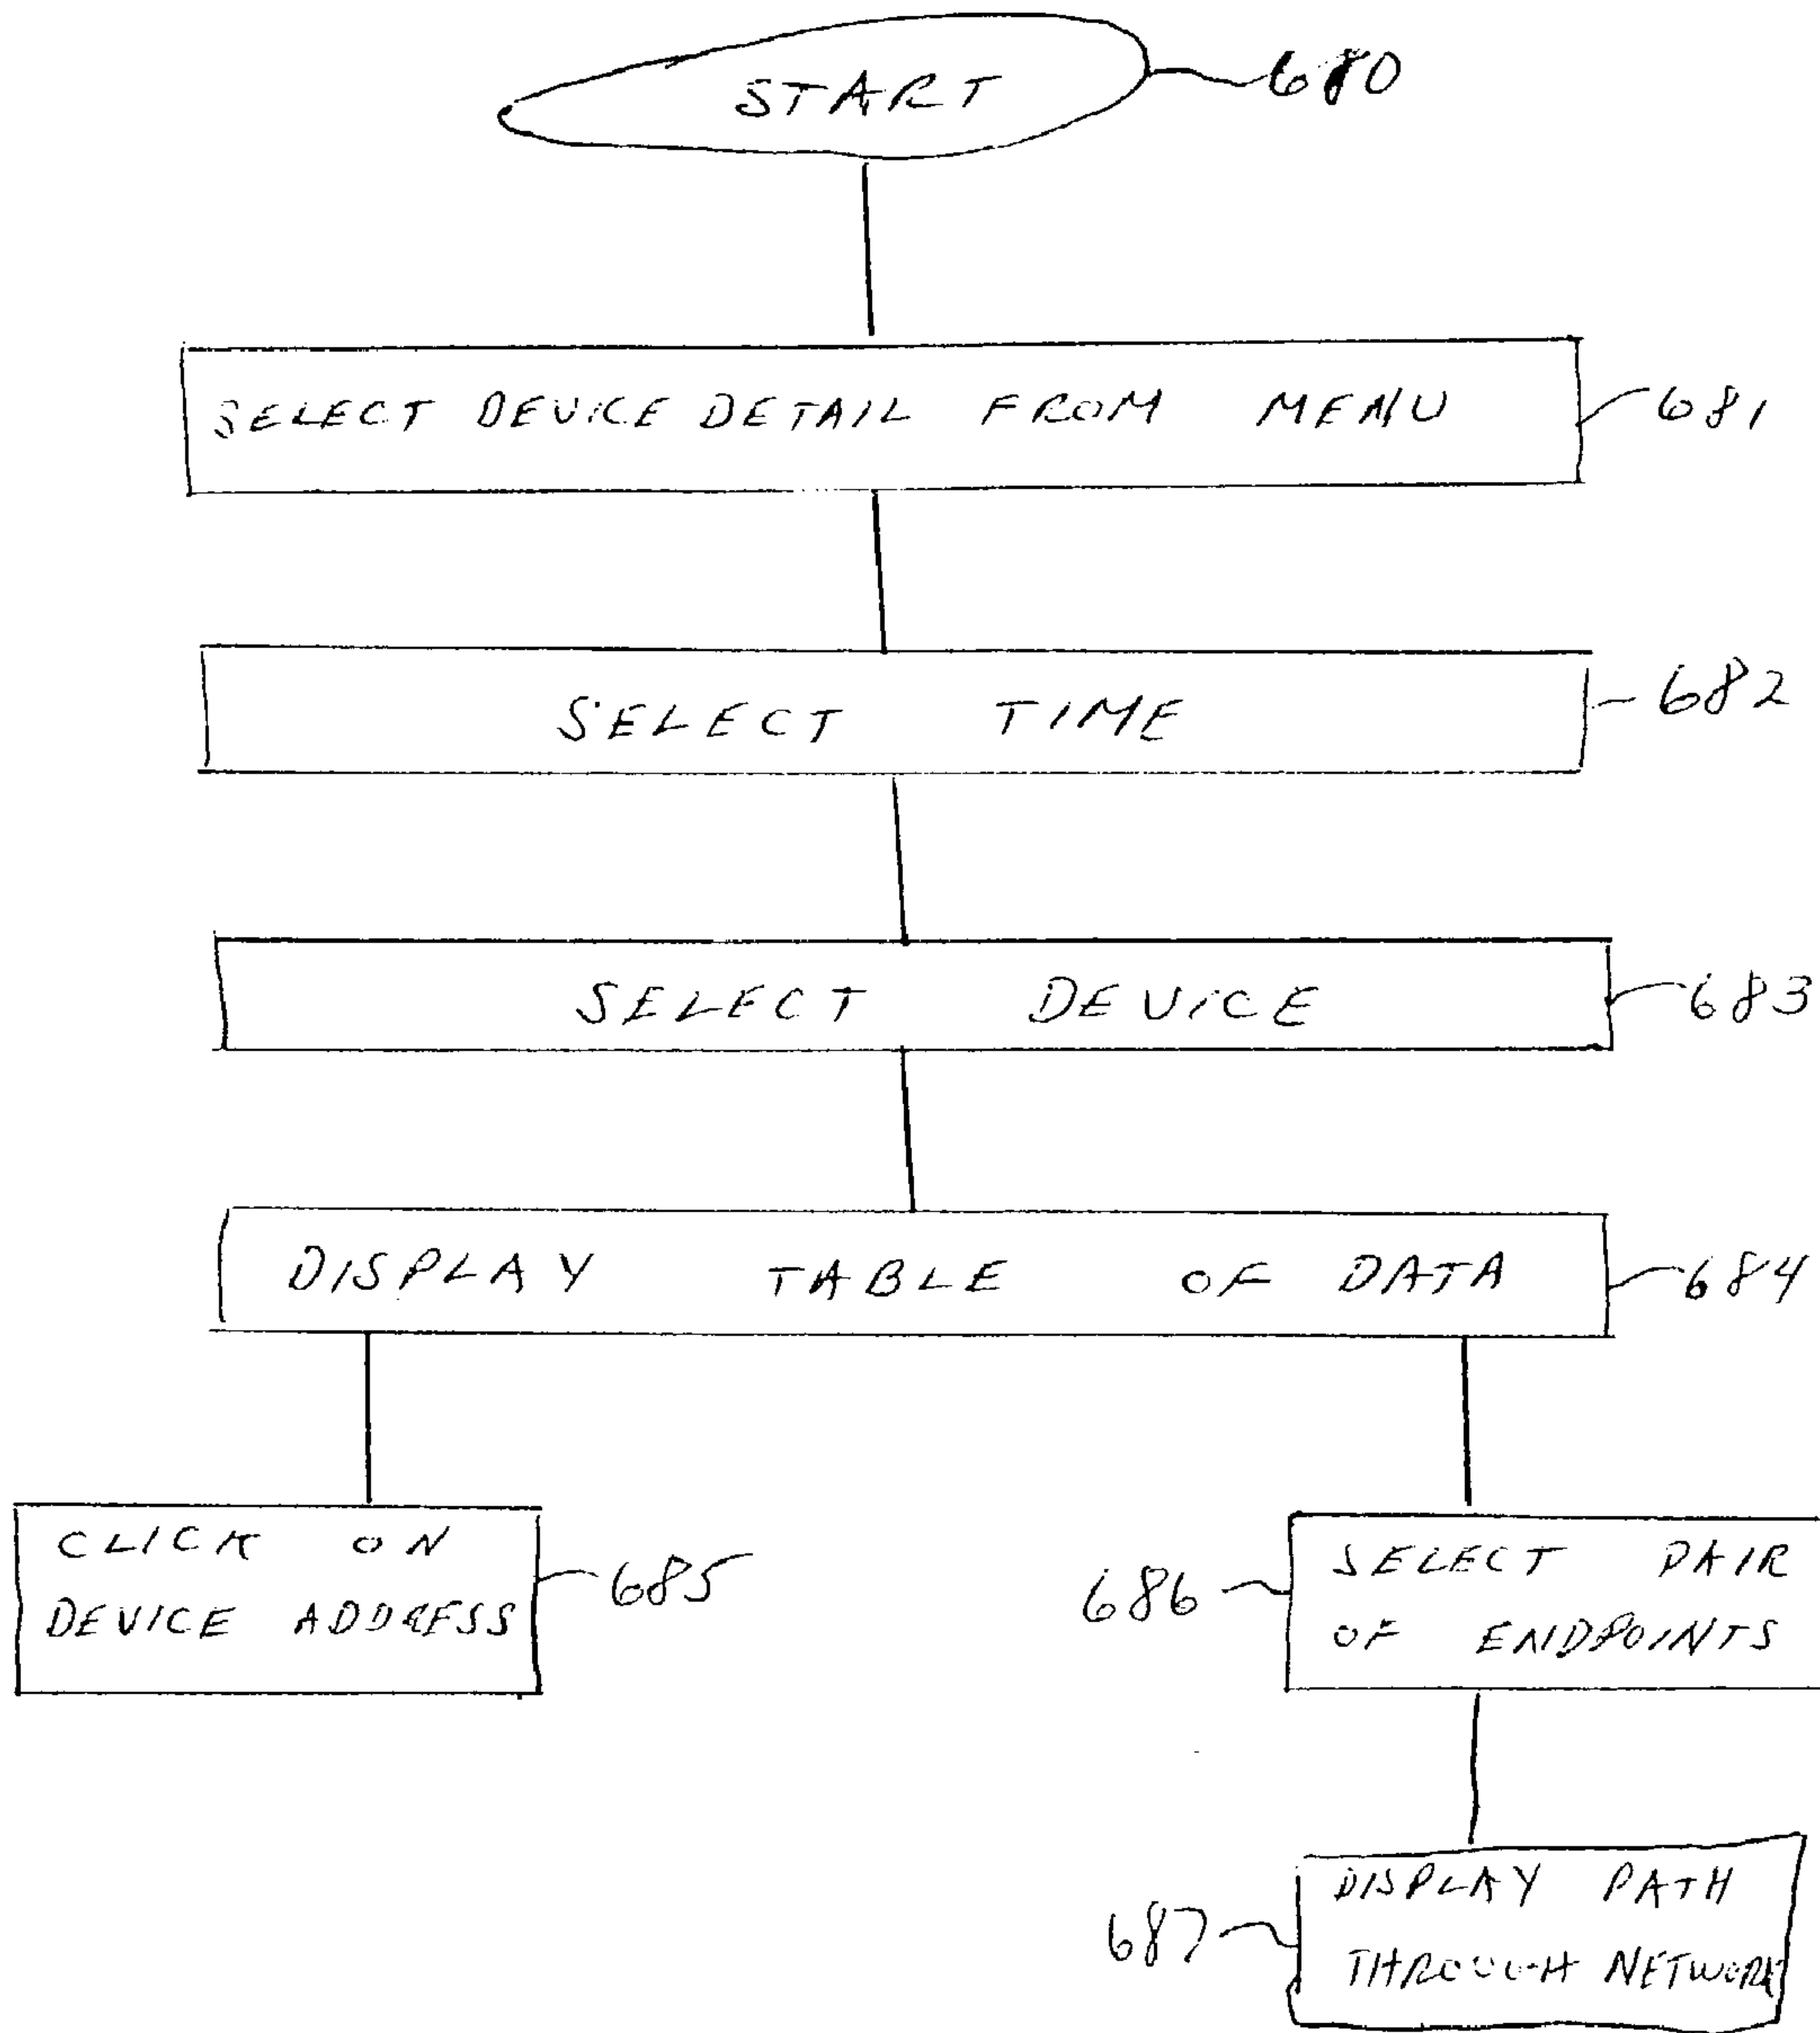 START 680
SELECT DEVICE DETAIL FROM MENU 681
SELECT TIME 682
SELECT DEVICE 683
DISPLAY TABLE OF DATA 684
CLICK ON
DEVICE ADDRESS
685
686
SELECT PAIR
OF ENDPOINTS
687
DISPLAY PATH
THROUGH NETWORK